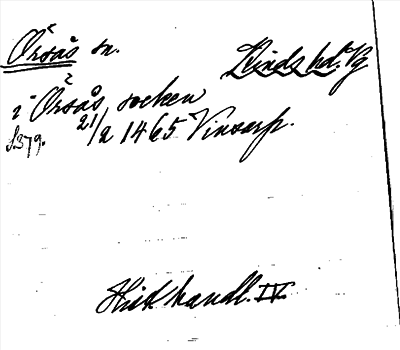 Örsås sn. Kinds hd. Vg
i Örsås socken
21/2 1465 Vinsarp.
S379.
Hist handl. IV.